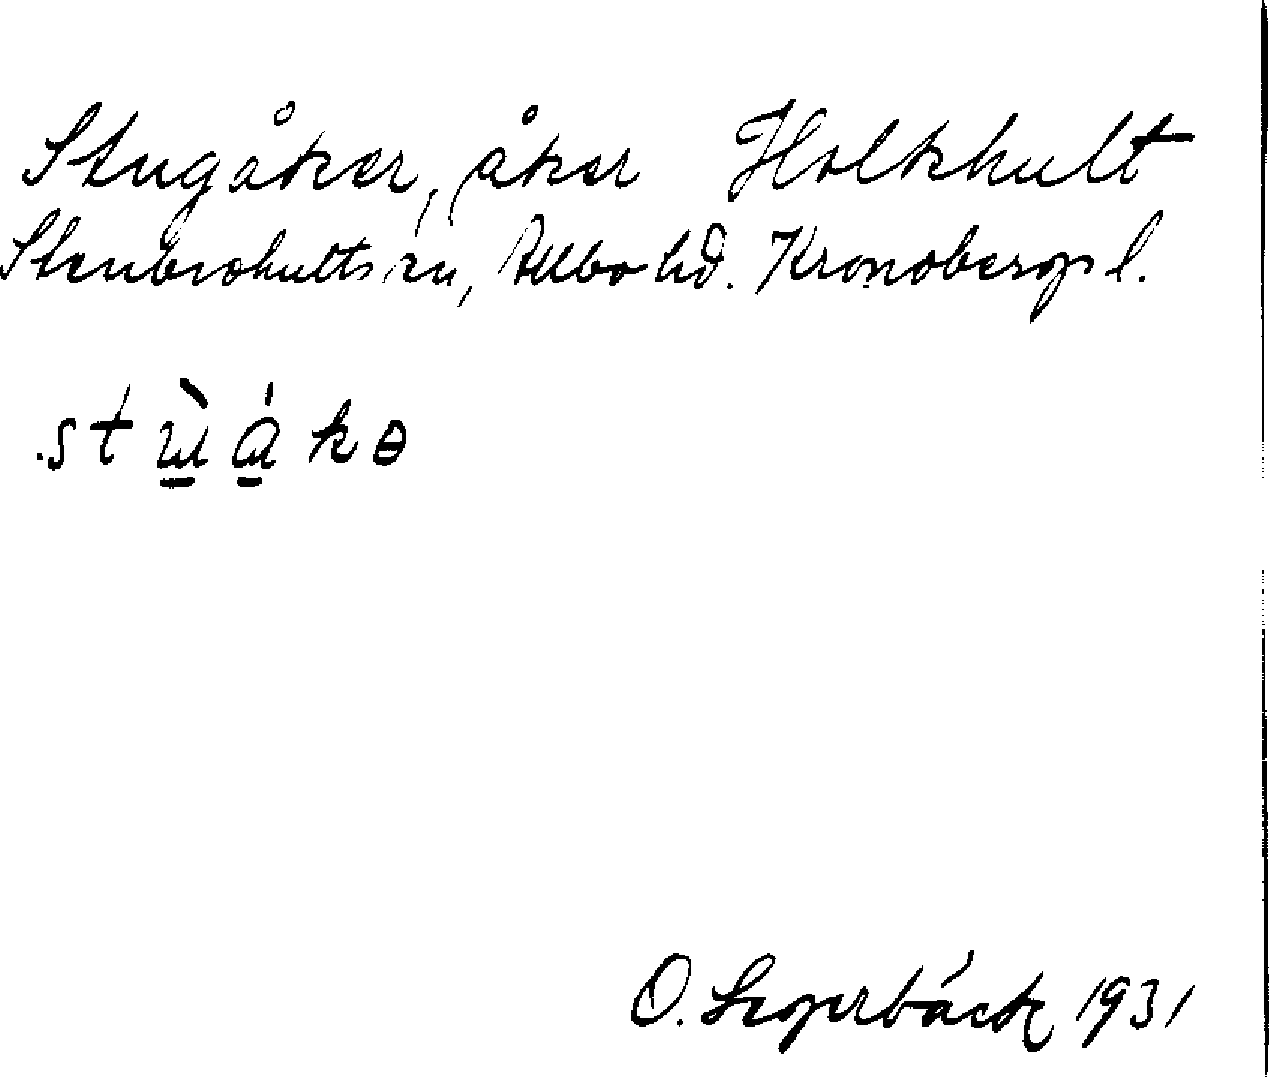 Stugåker, åker Holkhult
Stenbrohults sn, Allbo hd. Kronobergs l.
O. Segerbäck 1931